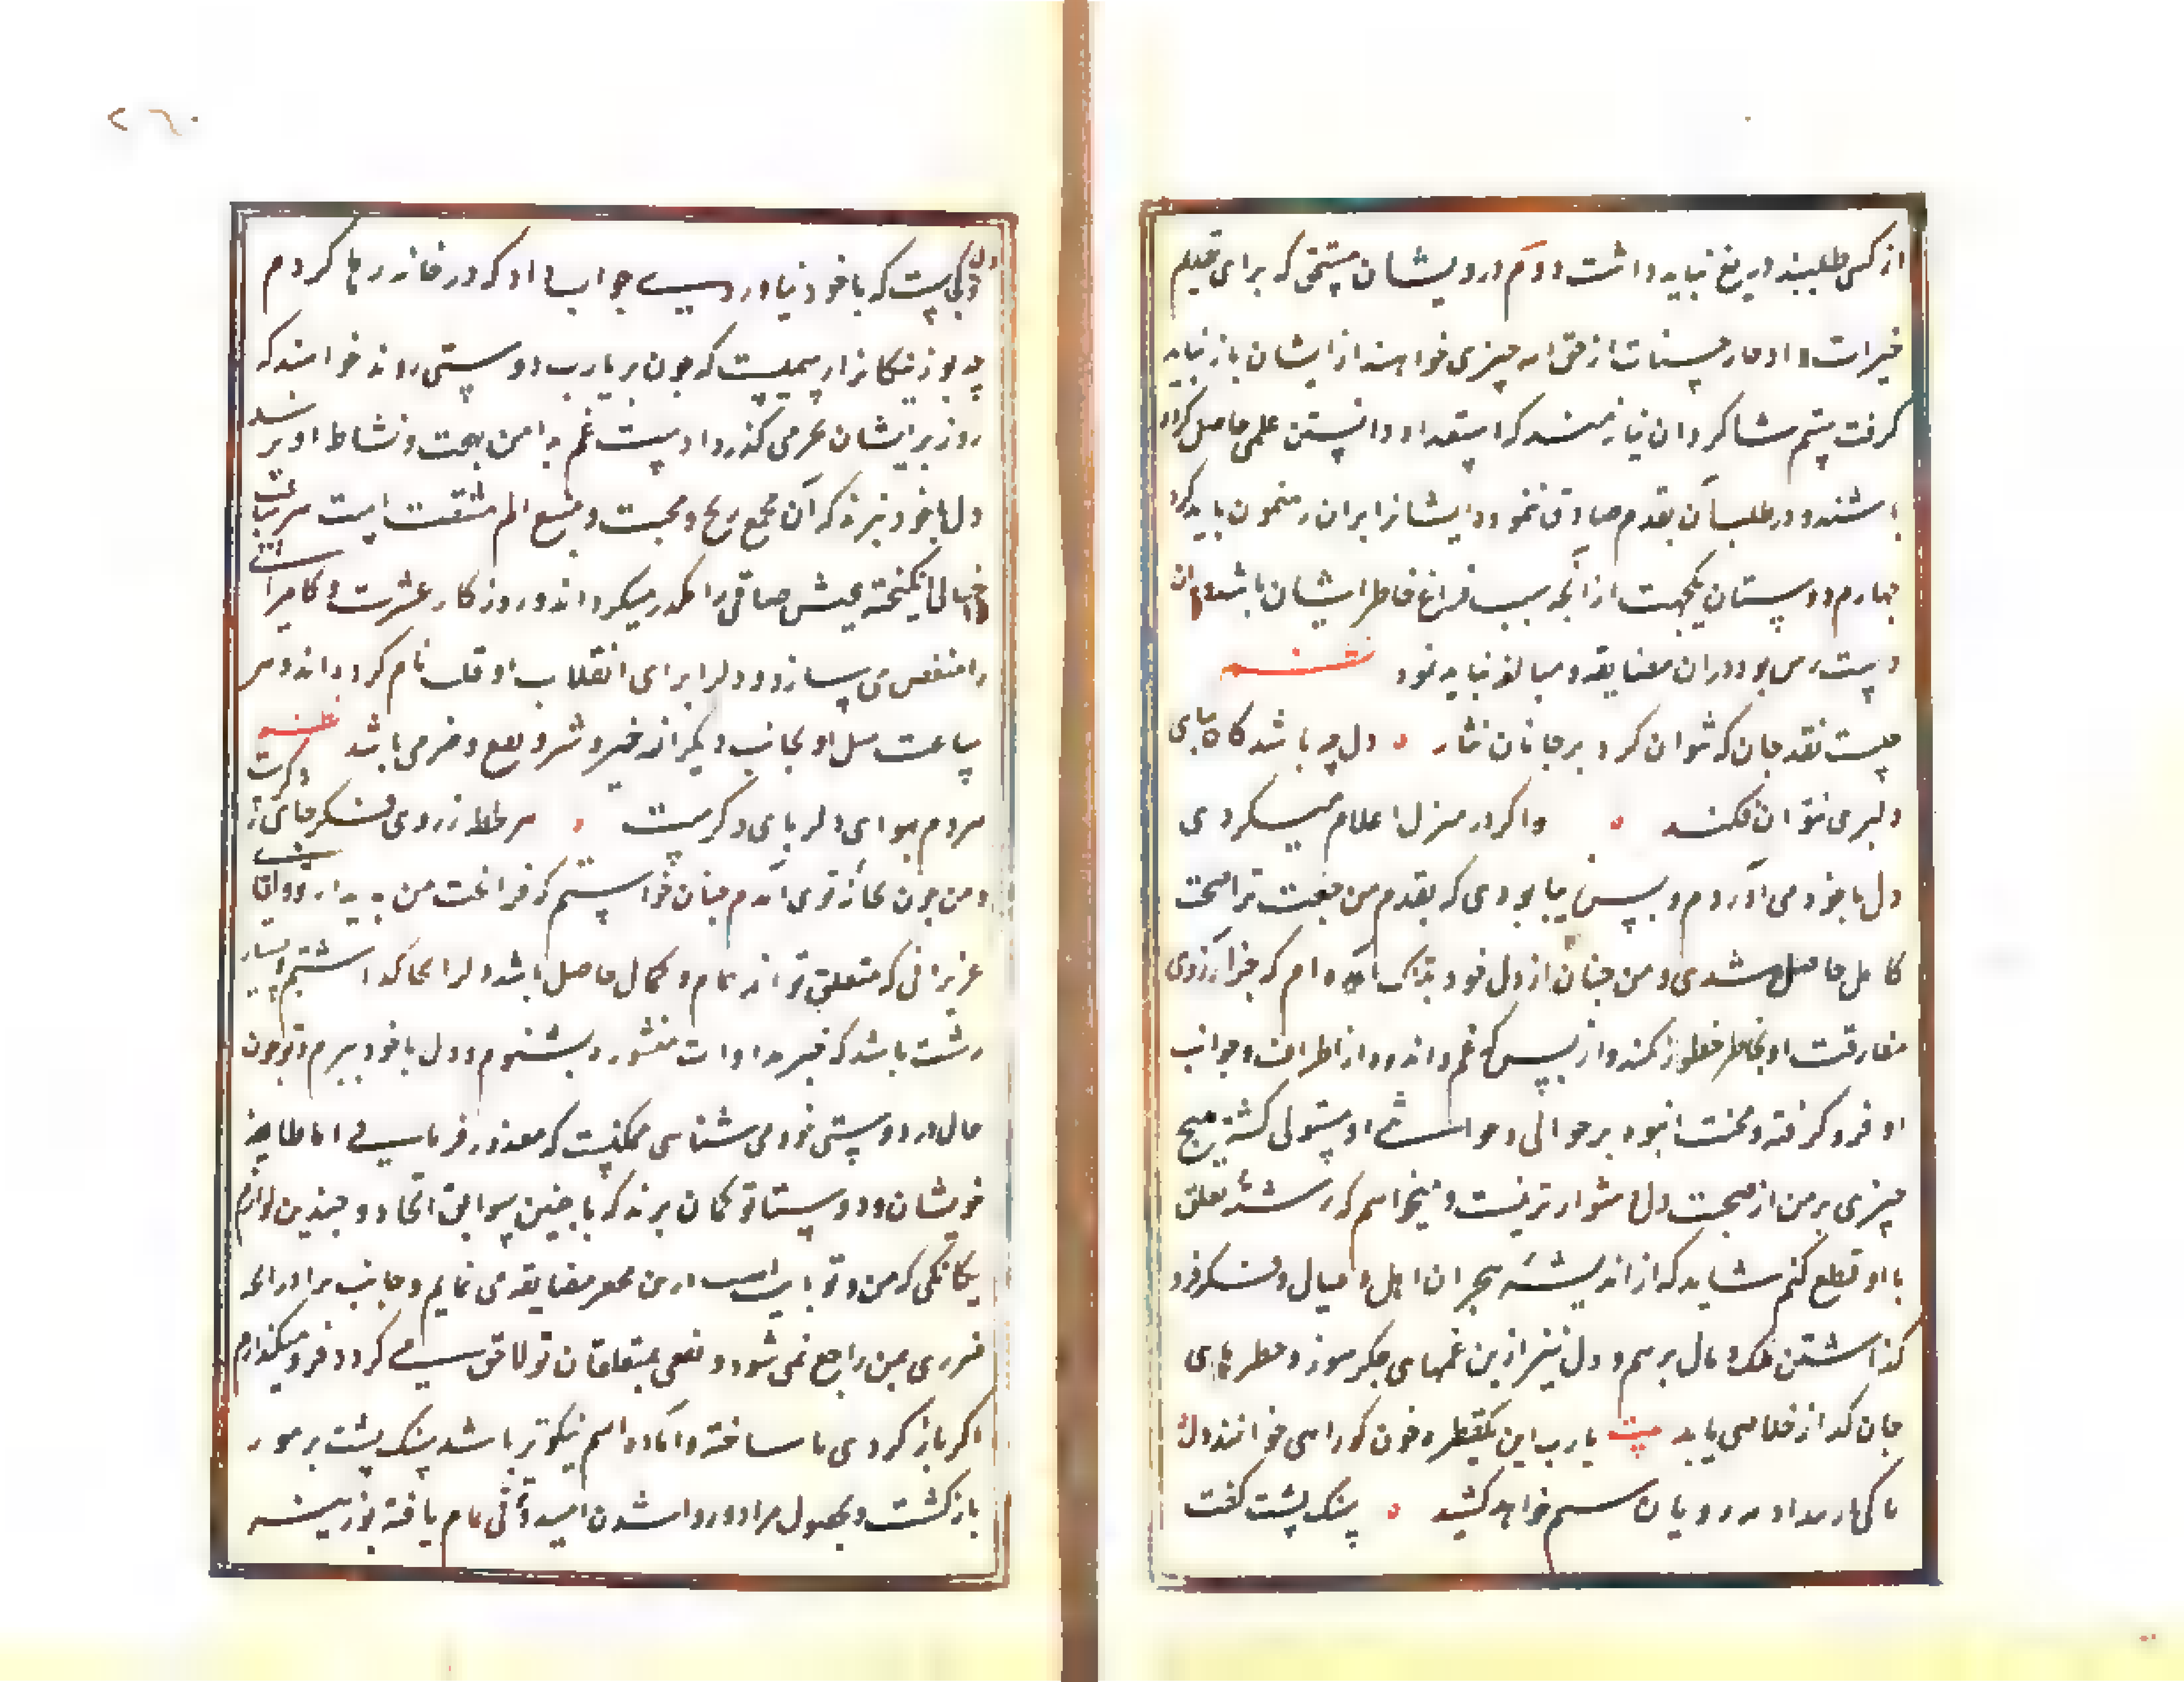 از کسی طلبند دریغ نباید داشت دوم درویشان مستحق که برای تقدیم
خیرات و ادخار حسنات از حق اله چیزی خواهند از ایشان باز نباید
گرفت سیم شاگردان نیازمند که استعداد دانستن علمی حاصل کرده
باشند و در طلب آن بقدم صادق نموده ایشانرا بران رهنمون باید کرد
چهارم دوستان یکجهت از آنچه سبب فراغ خاطر ایشان باشد و
بود دران مضایقه و مبالغه نباید نمود
چیست نقد جان که نتوان کرد بر جانان نثار دل چه باشد کان بپای
دلبری نتوان فکند و اگر در منزل اعلام میکردی
دل با خود می آوردم و بس زیبا بودی که بقدم من جفت ترا صحت
کامل حاصل شدی و من چنان از دل خود بتنگ آمده ام که جز آرزوی
مفارقت او بخاطر خطور نکند و از بس که غم و اندوه از اطراف و جوانب
او فرو گرفته و محنت انبوه بر حوالی و حواشی او مستولی گشته هیچ
چیزی بر من از صحبت دل دشوارتر نیست و میخواهم که رشته تعلق
با او قطع کنم شاید که از اندیشه هجران اهل و عیال و فکر فرو
گذاشتن ملک و مال برهم و دل نیز ازین غمهای جگرسوز و خطرهای
جان گداز خلاصی یابد بیت یارب این یکقطره خون کورا همی خوانند دل
تا کی از بیداد مه رویان ستم خواهد کشید سنگ پشت گفت
دل کجاست که با خود نیاوردی جواب داد که در خانه رها کردم
چه بوزینگانرا رسمیست که چون بزیارت دوستی روند خواهند که
روز بر ایشان بخرمی گذرد و دست غم بدامن بهجت و نشاط او نرسد
دل با خود نبرند که آن مجمع رنج و محنت و منبع الم مشقت است
خیالی انگیخته عیش صافی را مکدر میگرداند و روزگار عشرت و کامرانی
را منغص می سازد و دلرا برای انقلاب او قلب نام کرده اند و هر
ساعت میل او بجانب دیگر از خیر و شر و نفع و ضر می باشد
هردم بهوای دلربای دگرست هر لحظه ز روی فکر جای دگرست
و من چون بخانه توی آمدم چنان خواستم که فراغت من بدیدار تو و آن
عزیزانی که متعلق تواند تمام و کمال حاصل باشد دلرا آنجا گذاشتم و بسیار
زشت باشد که خبر مداوات مستوره بشنوم و دل با خود نبرم و تو چون
حال در دوستی خود می شناسی ممکنست که معذور فرمایی اما طایفه
خویشان و دوستان تو گمان برند که با چنین سوابق اتحاد و چندین لوازم
یگانگی که من و تو را است درین محقر مضایقه می نمایم و جانب مراد ترا که
ضرری بمن راجع نمی شود و نفعی بمتعلقان تو لاحق میگردد فرو میگذارم
اگر باز گردی تا ساخته و آماده آییم نیکوتر باشد سنگ پشت بر فور
بازگشت و بحصول مراد و روا شدن امید وثوقی تمام یافته بوزینه
۲۶۰